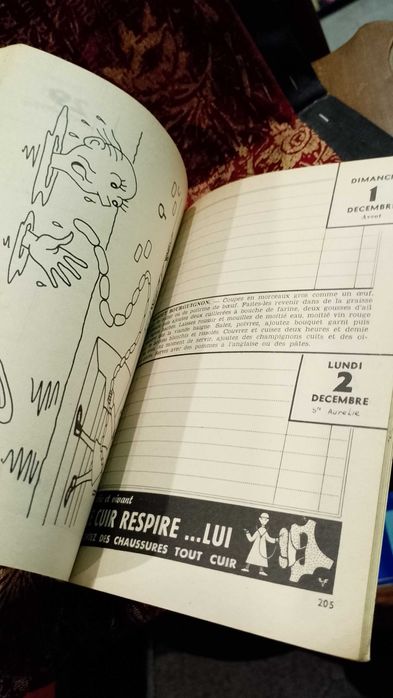 DIMANCHE
1
DECEMBRE
Avent
BOURGUIGNON. — Coupez en morceaux gros comme un œuf,
ou de poitrine de bœuf. Faites-les revenir dans de la graisse
ajoutez deux cuillerées à bouche de farine, deux gousses d'ail
Laissez roussir et mouillez de moitié eau, moitié vin rouge
la viande baigne. Salez, poivrez, ajoutez bouquet garni puis
blanchis et rissolés. Couvrez et cuisez deux heures et demie
au moment de servir, ajoutez des champignons cuits et des oi-
avec des pommes à l'anglaise ou des pâtes.
LUNDI
2
DECEMBRE
Ste Aurélie
et vivant
CUIR RESPIRE ...LUI
DES CHAUSSURES TOUT CUIR
205